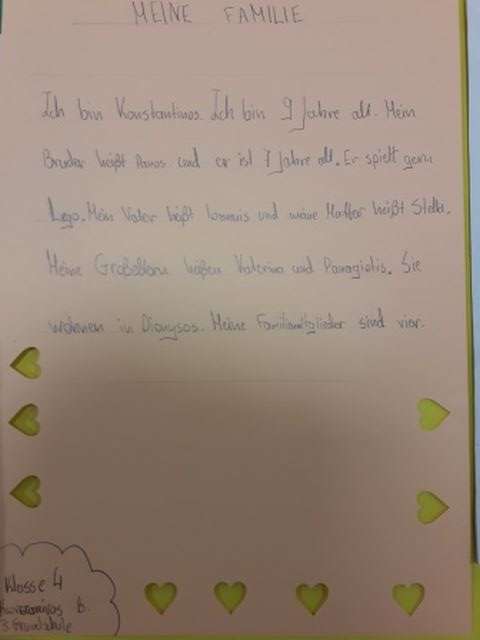 MEINE FAMILIE
Ich bin Konstantinos. Ich bin 9 Jahre alt. Mein
Bruder heißt Panos und er ist 7 Jahre alt. Er spielt gern
Lego. Mein Vater heißt Ioannis und meine Mutter heißt Stella.
Meine Großeltern heißen Valerina und Panagiotis. Sie
wohnen in Dionysos. Meine Familienmitglieder sind vier.
Klasse 4
Konstantinos B.
3. Grundschule